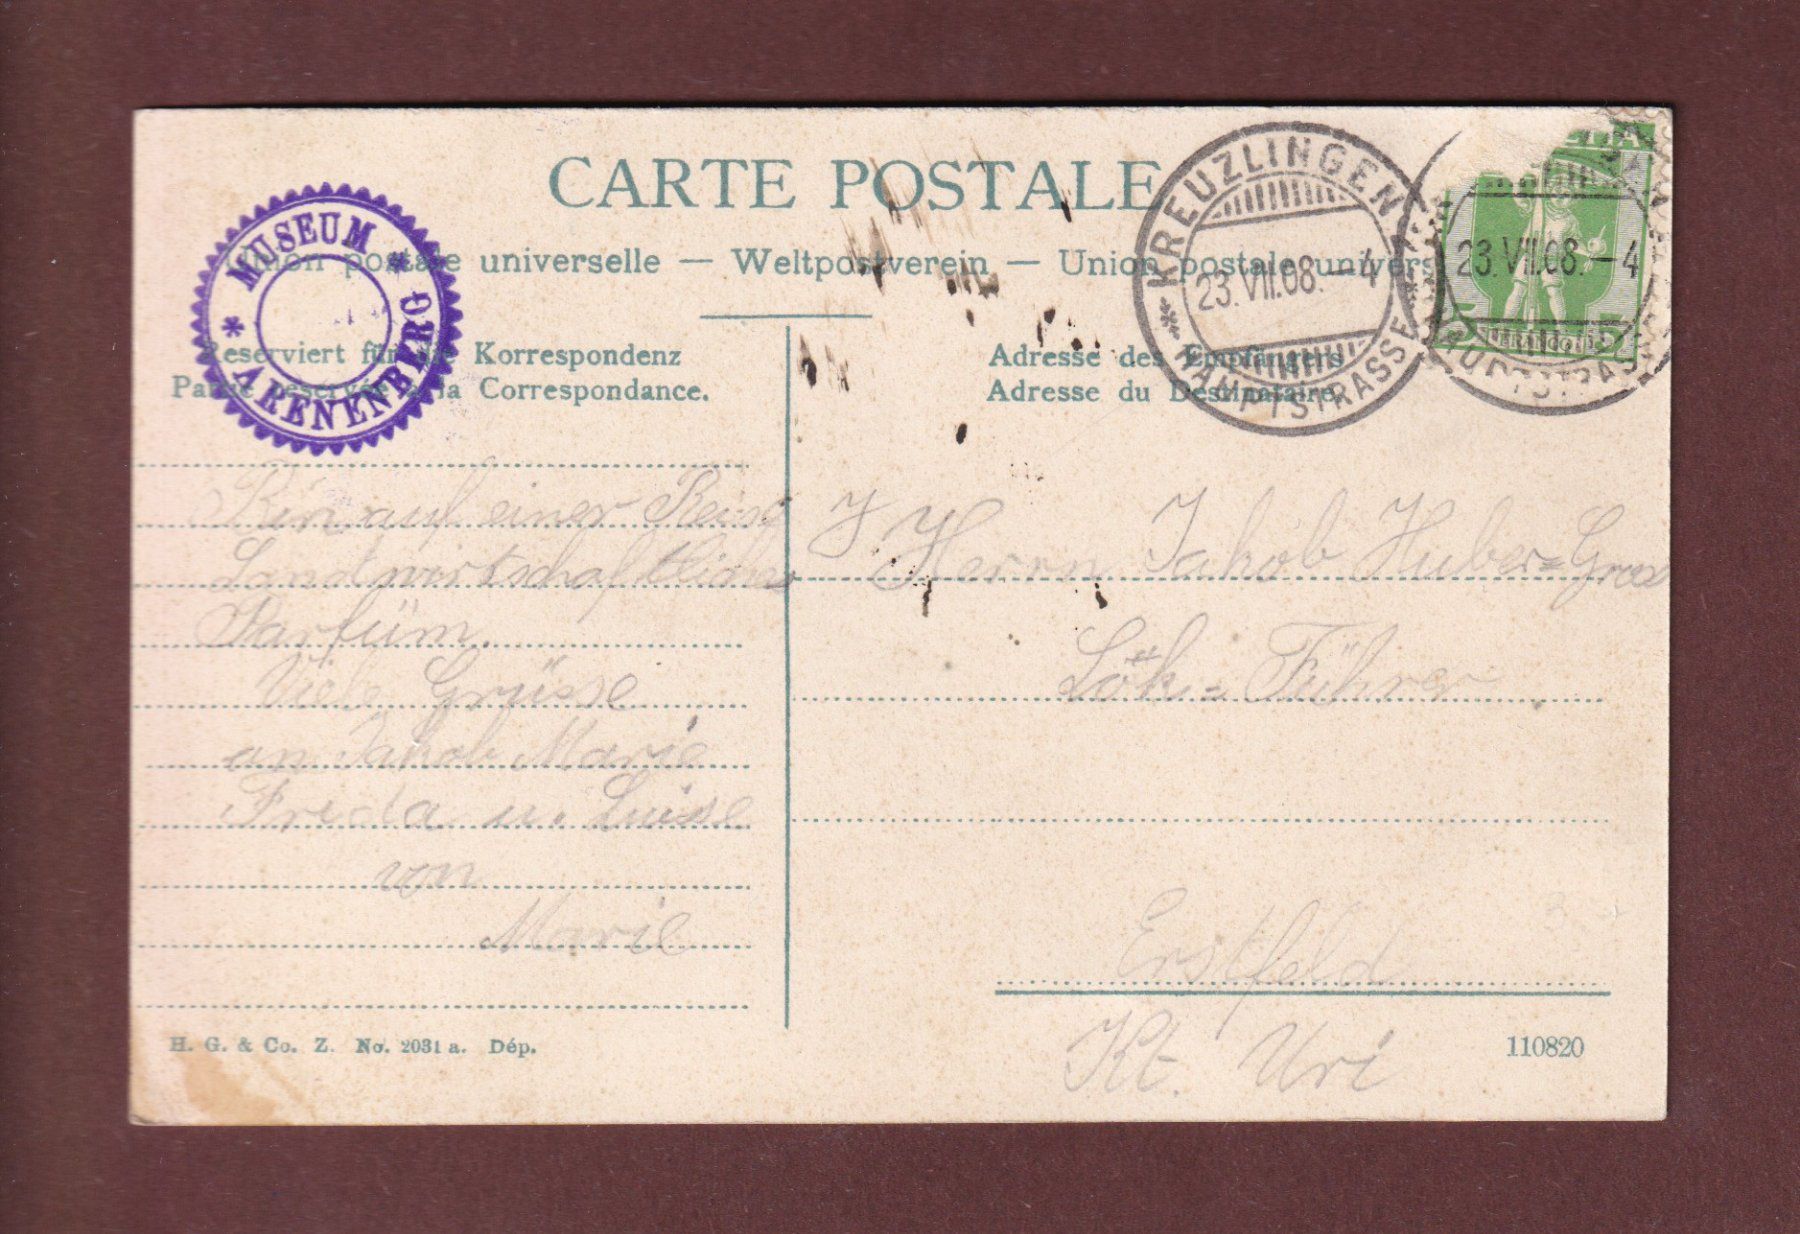 CARTE POSTALE
Union postale universelle — Weltpostverein — Union postale univers
MUSEUM ARENENBERG
Reserviert für die Korrespondenz
Partie réservée à la Correspondance.
Adresse des Empfängers
Adresse du Destinataire.
KREUZLINGEN
23.VII.08.–4
HAUPTSTRASSE
23.VII.08.–4
HAUPTSTRASSE
FRANCO
Bin auf einer Reise
Landwirtschaftlicher
Parfüm.
Viele Grüsse
an Jakob Marie
Freda u. Luise
von
Marie
Herrn Jakob Huber=Gross
Lok=Führer
Erstfeld
Kt. Uri
H. G. & Co. Z. No. 2031 a. Dép.
110820